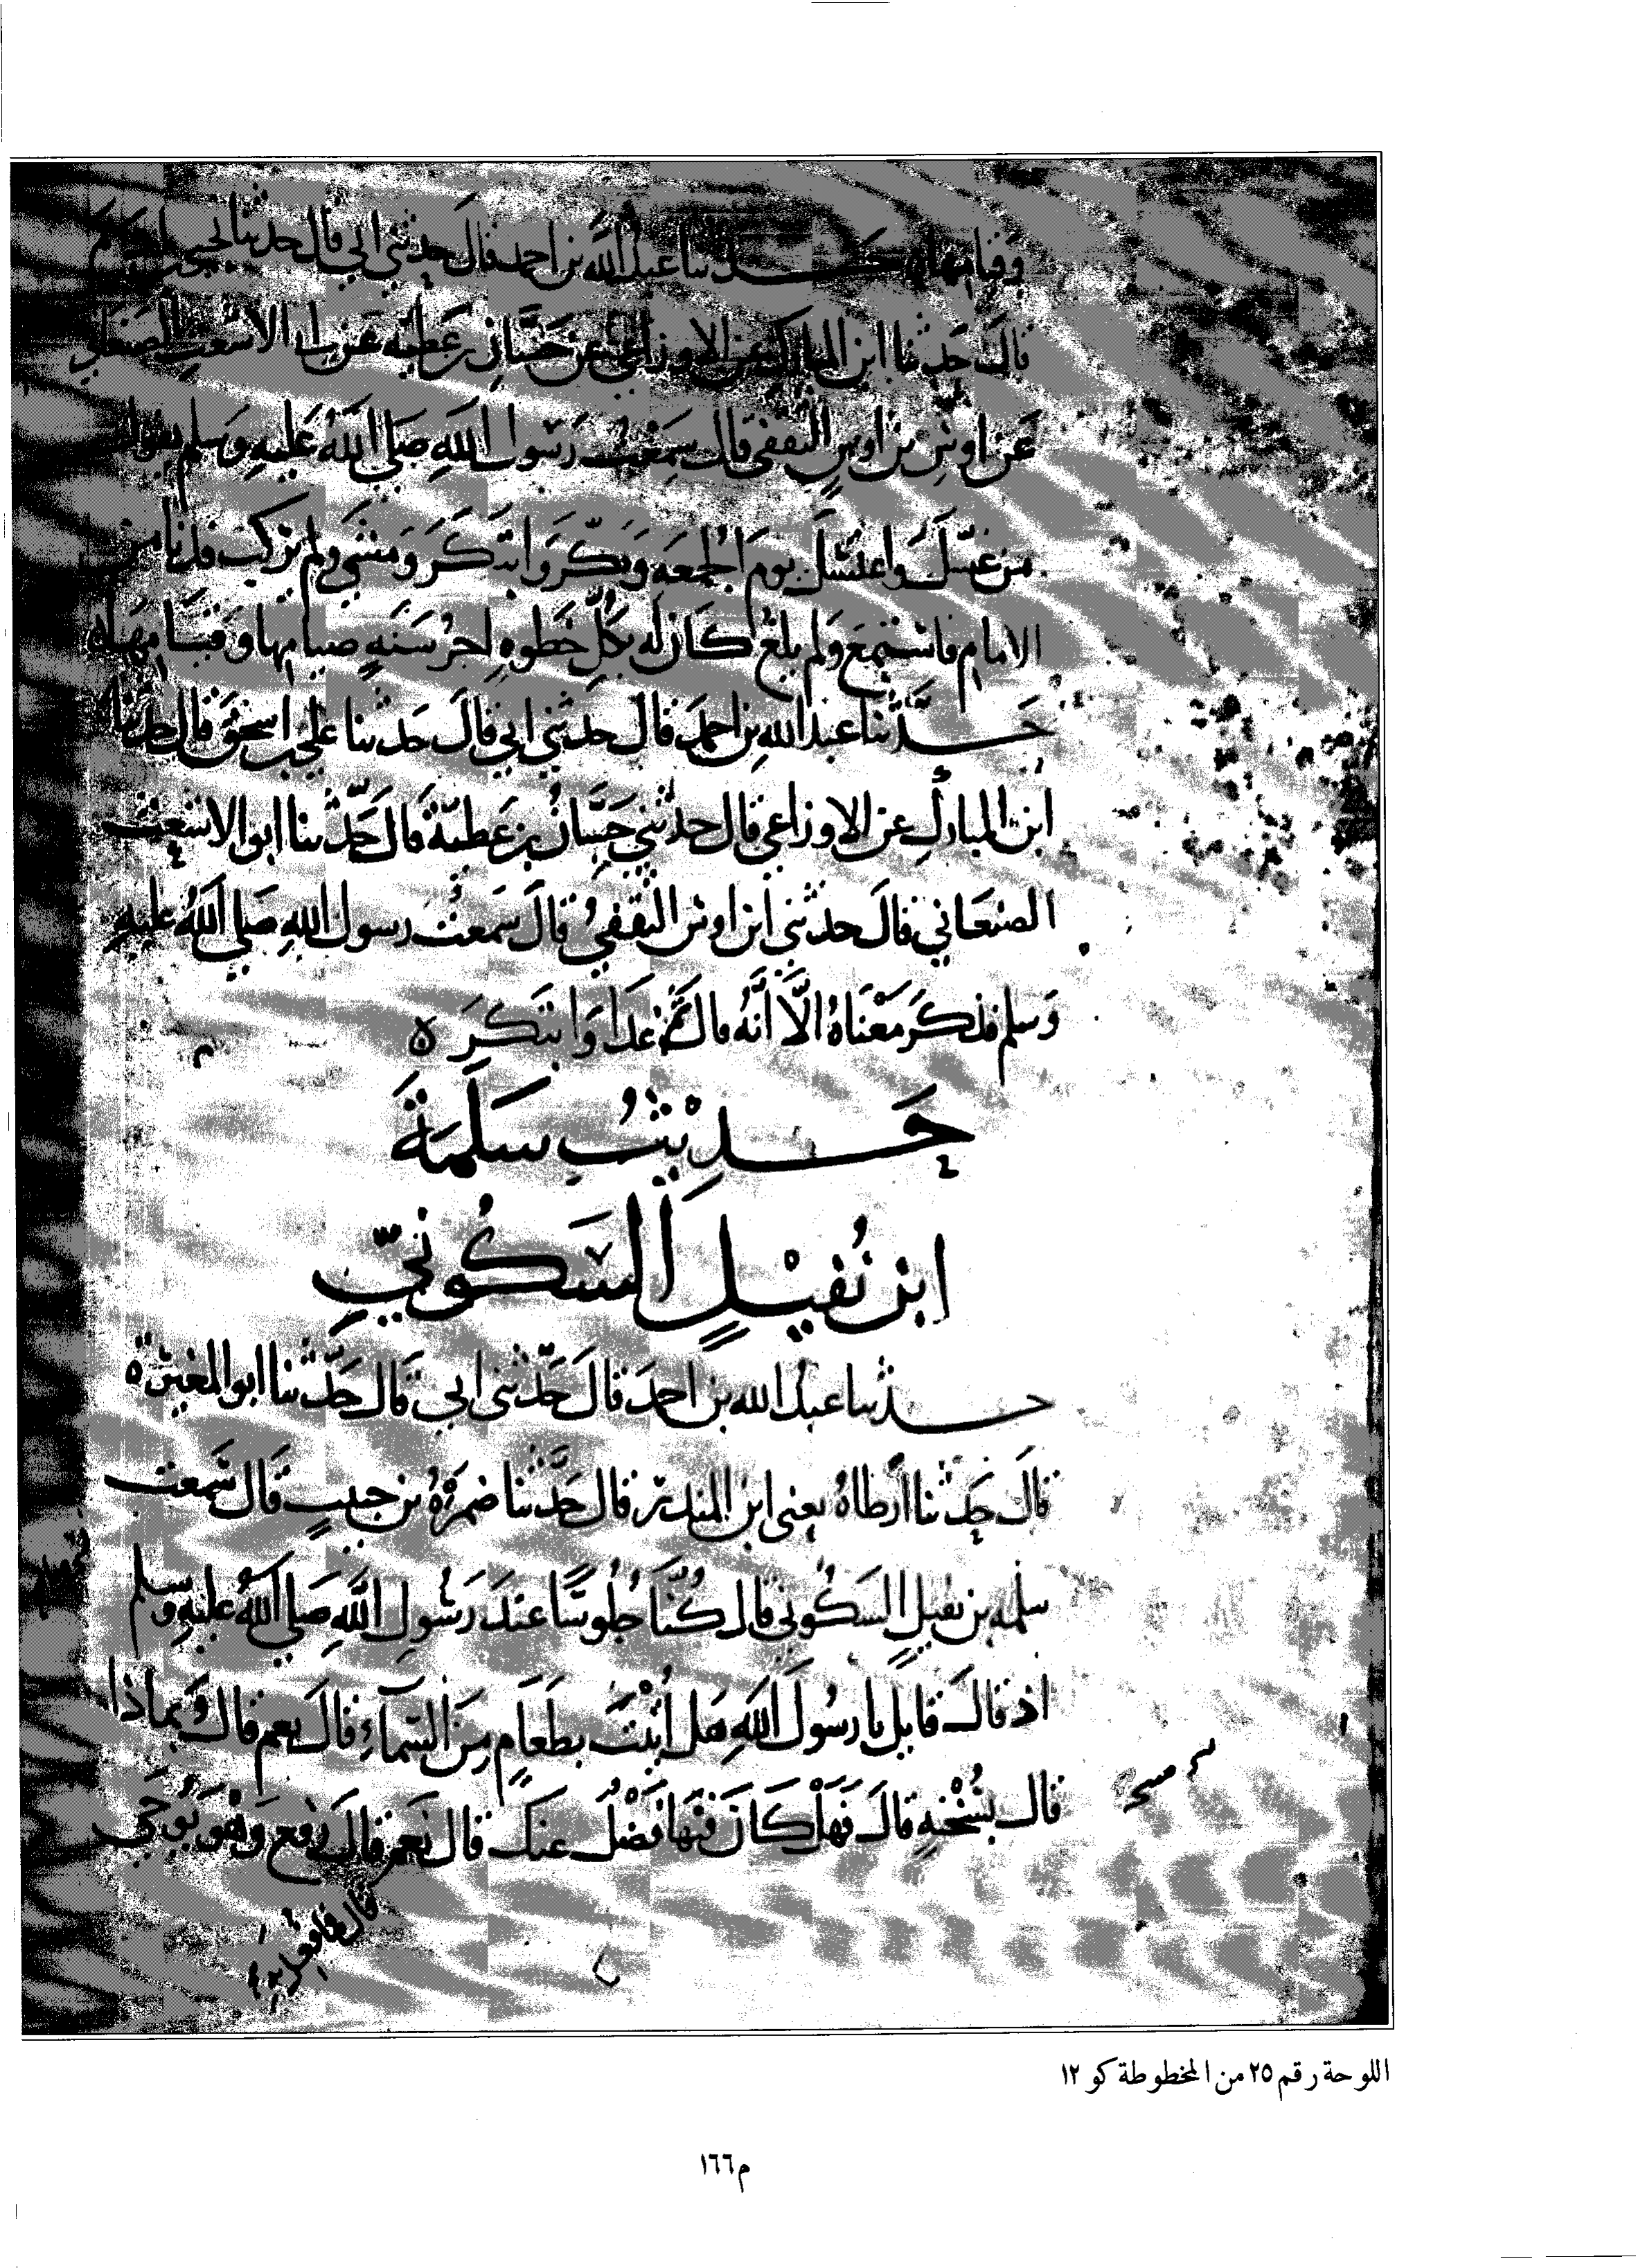 وقيامها حدثنا عبد الله بن احمد قال حدثني ابي قال حدثنا يحيى بن ادم
قال حدثنا ابن المبارك عن الاوزاعي عن حسان بن عطية عن ابي الاشعث الصنعاني
عن اوس بن اوس الثقفي قال سمعت رسول الله صلى الله عليه وسلم يقول
من غسّل واغتسل يوم الجمعه وبكّر وابتكر ومشى ولم يركب فدنا من
الامام فاستمع ولم يلغ كان له بكلّ خطوةٍ اجرُ سنةٍ صيامها وقيامها ه
حدّثنا عبد الله بن احمد قال حدثني ابي قال حدثنا علي بن اسحق قال حدثنا
ابن المبارك عن الاوزاعي قال حدثني حسّان بن عطيّة قال حدّثنا ابو الاشعث
الصنعاني قال حدثني ابن اوس الثقفيُّ قال سمعت رسول الله صلى الله عليه
وسلم فذكر معناهُ الّا انّه قال ثم غدا وابتكر ه
حديثُ سلمة
ابن نُفَيْلٍ السَّكُونيّ
حدثنا عبد الله بن احمد قال حدّثني ابي قال حدّثنا ابو المغيرة
قال حدثنا ارطاة يعني ابن المنذر قال حدّثنا ضمرةُ بن حبيبٍ قال سمعت
سلمه بن نفيلٍ السكوني قال كُنّا جُلوسًا عند رسولِ اللهِ صلى الله عليه وسلم
اذ قال قايل يا رسول اللهِ هل أُتيْتَ بطعامٍ من السماءِ قال نعم قال وبماذا
قال بسُخْنهٍ قال فهل كان فيها فضْلٌ عنك قال نعم قال رفع وهو يُوحى
اللوحة رقم ٢٥ من المخطوطة كو ١٢
م١٦٦